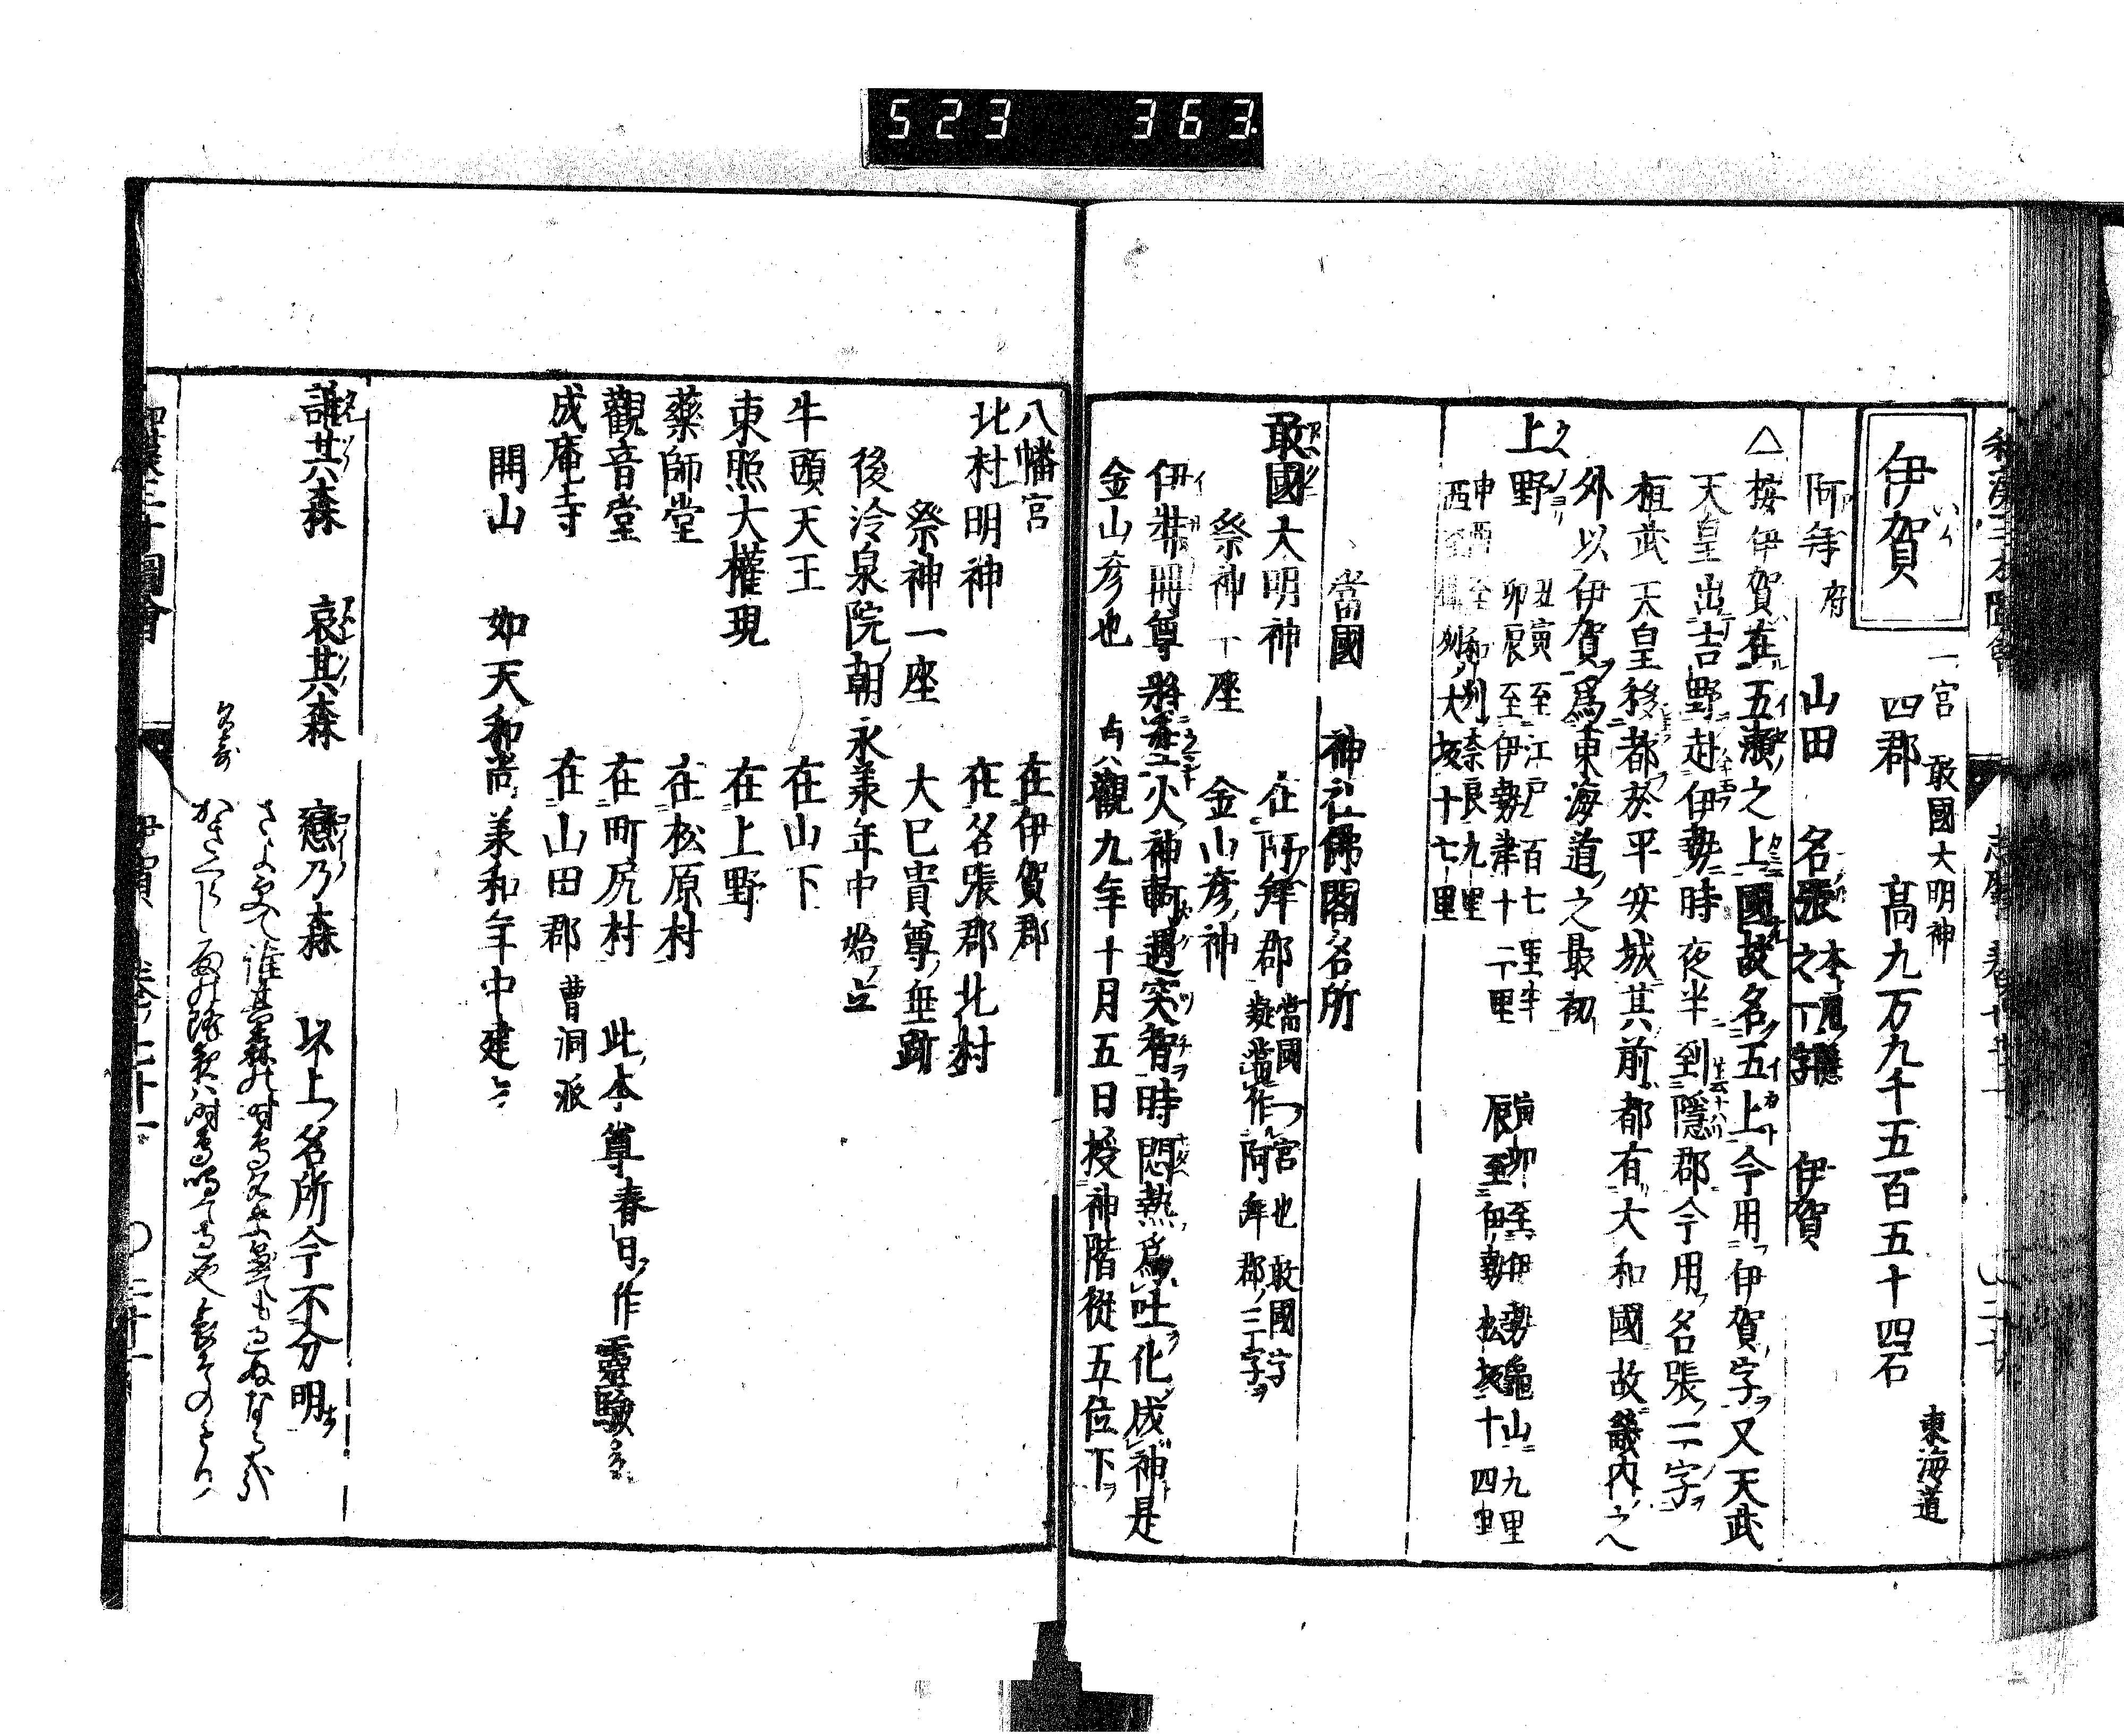 523 363
伊賀
一宮 敢國大明神
四郡 髙九万九千五百五十四石
東海道
阿拜 府 山田 名張 本用隱之一字 伊賀
△按伊賀在五瀬之上國故名五上今用伊賀字又天武
天皇出吉野赴伊勢時夜半到隱郡今用名張二字
桓武天皇移都於平安城其前都有大和國故畿內之
外以伊賀爲東海道之最初
上野
丑寅至江戸百七里半
卯辰至伊勢津十二里
寅卯至伊勢龜山九里
辰至伊勢松坂十四里
申酉至和刕奈良九里
酉至攝刕大坂十七里
當國 神社佛閣名所
敢國大明神 在阿拜郡 當國一宮也敢國字
疑當作阿拜郡三字
祭神一座 金山彥神
伊弉冊尊將生火神軻遇突智時悶熱爲吐化成神是
金山彥也 貞觀九年十月五日授神階從五位下
八幡宮 在伊賀郡
北村明神 在名張郡北村
祭神一座 大巳貴尊垂跡
後冷泉院朝永兼年中始立
牛頭天王 在山下
東照大權現 在上野
藥師堂 在松原村
觀音堂 在町尻村 此本尊春日作靈驗多
成庵寺 在山田郡 曹洞派
開山 如天和尚兼和年中建立
誰其森 哀其森 戀乃森 以上名所今不分明
伊賀 卷七十一